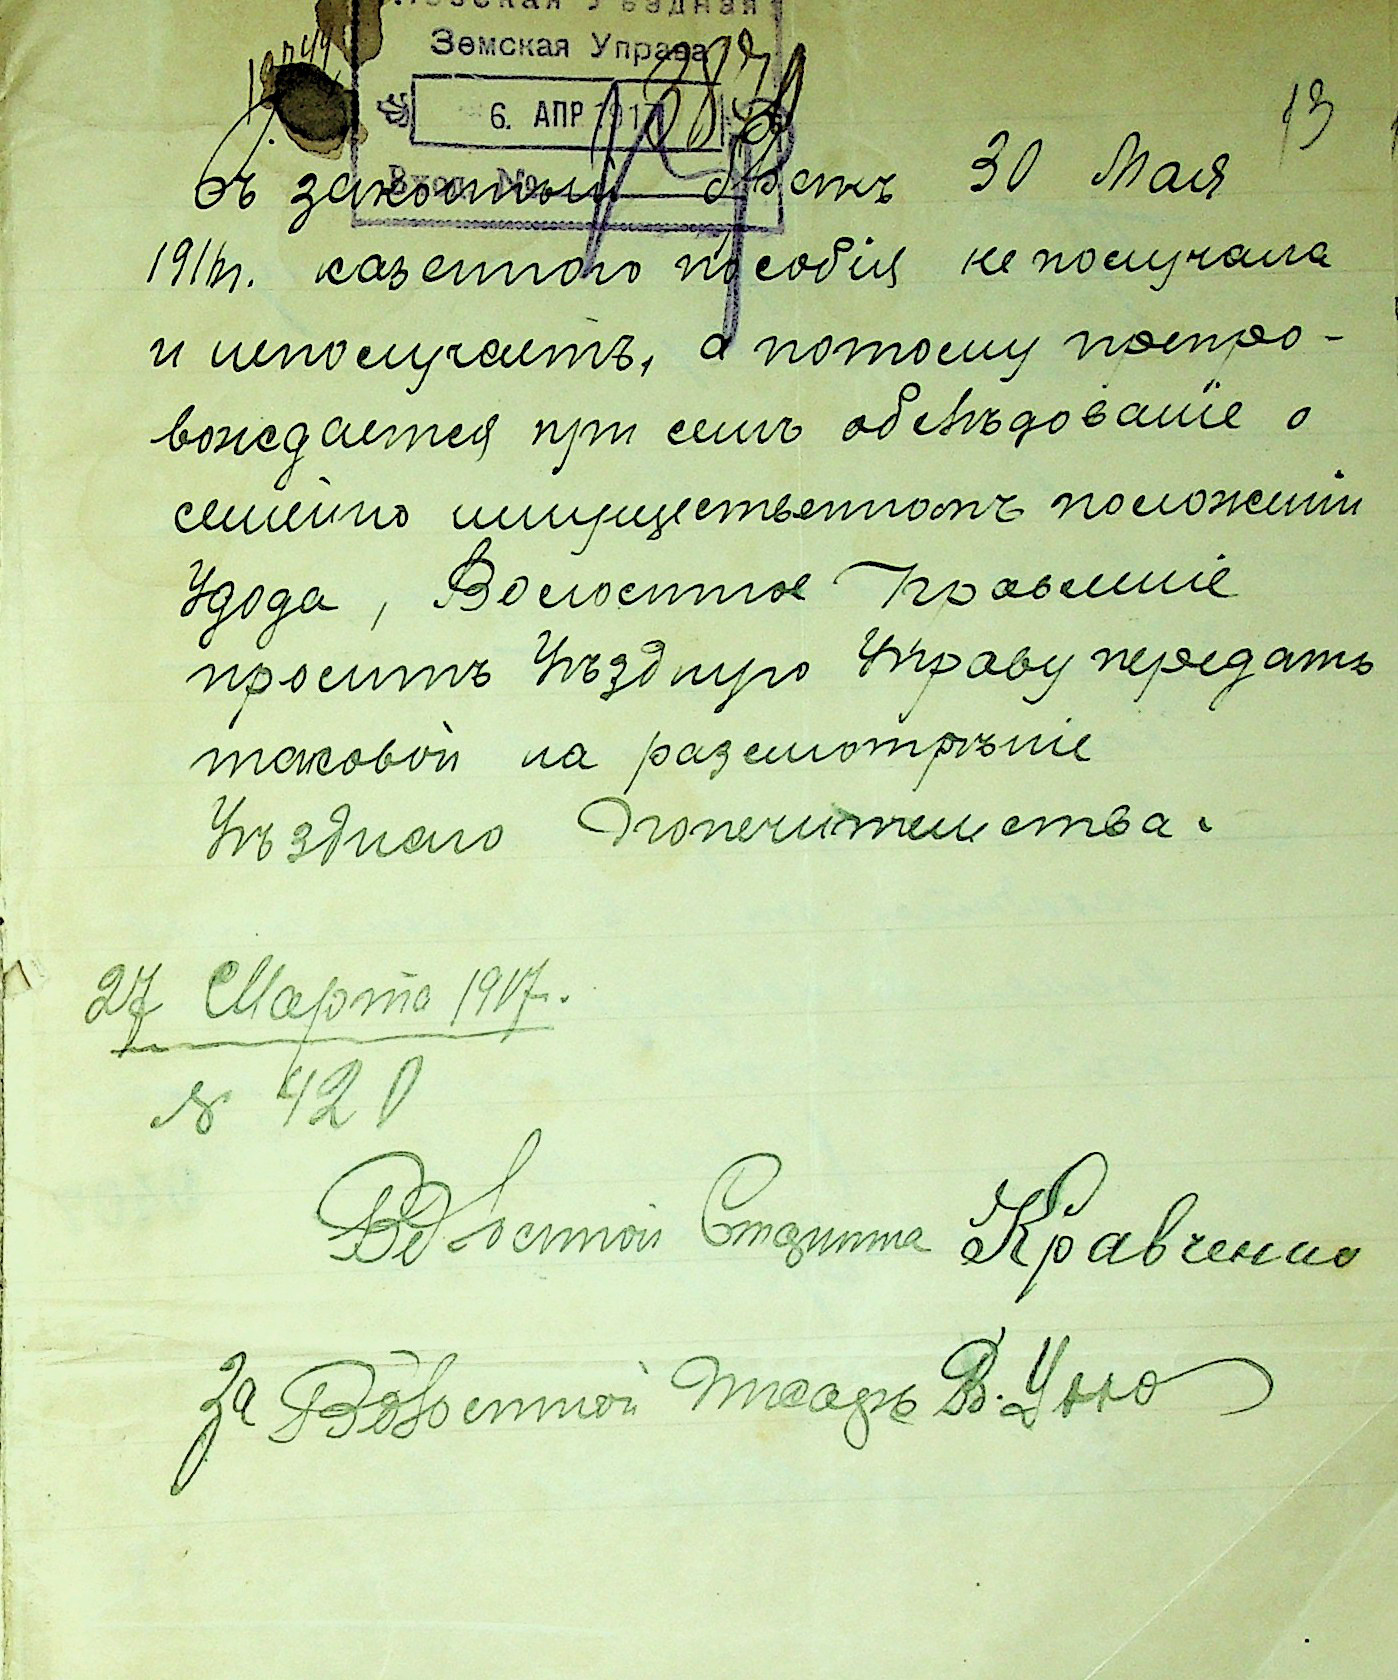 Уѣздная
Земская Управа
6. АПР 1917
Вход. №
13
въ законный бракъ 30 Мая
191 г. казеннаго пособія неполучала
и неполучаетъ, а потому препро-
вождается при семъ обслѣдованіе о
семейно имущественномъ положеніи
Удода, Волостное Правленіе
проситъ Уѣздную Управу передать
таковой на разсмотрѣніе
Уѣзднаго Попечительства.
27 Марта 1917 г.
№ 420
Волостной Старшина Кравченко
За Волостной Писарь В.